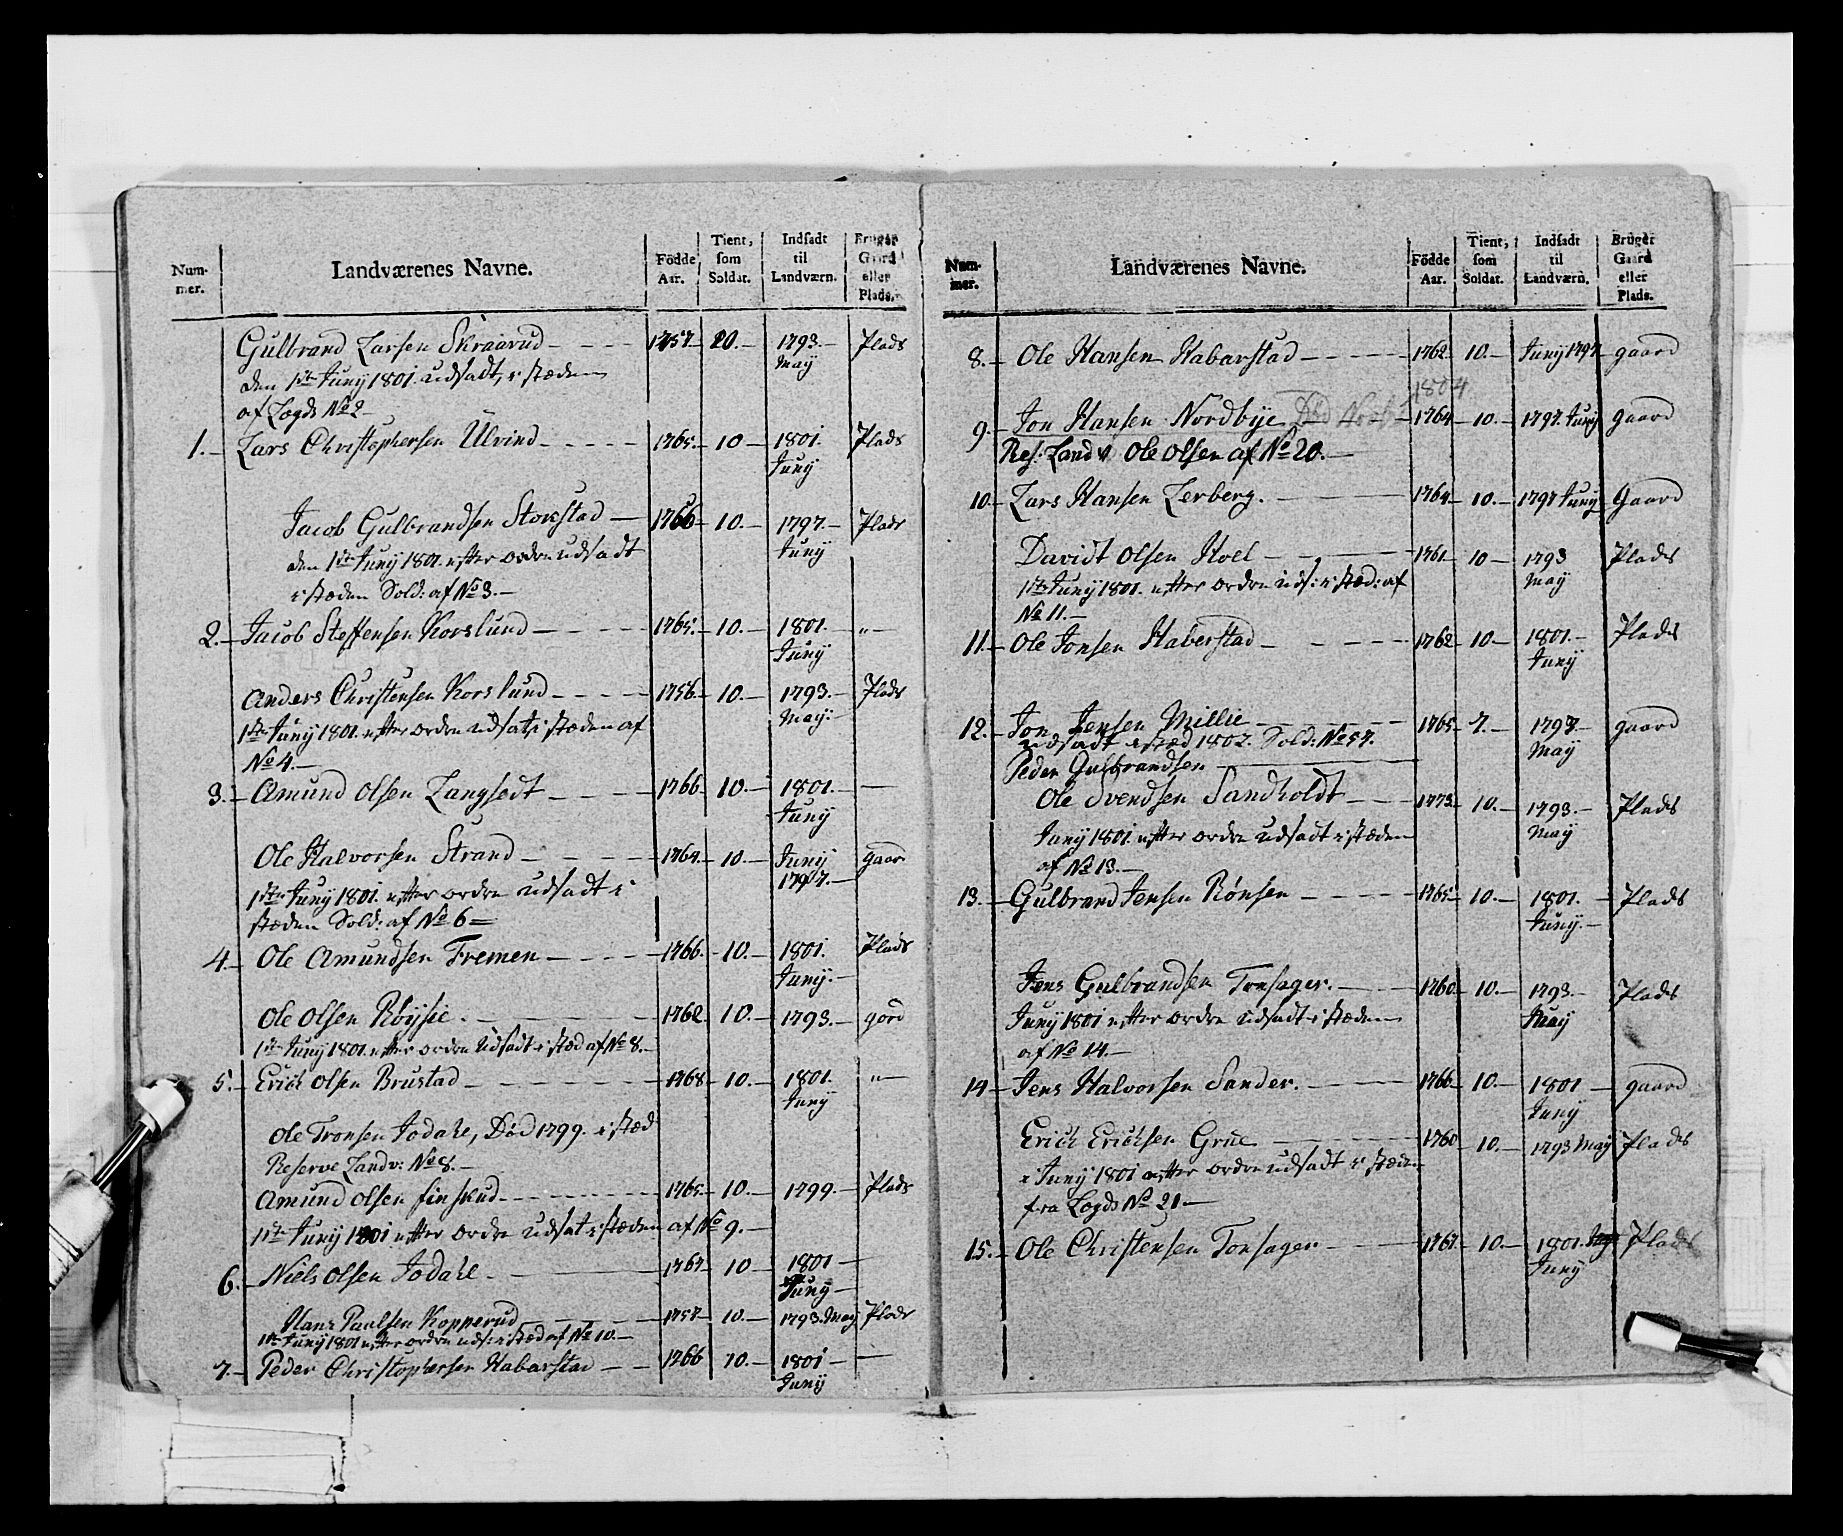 Num-mer. Landværenes Navne. Födde Aar. Tient, som Soldat. Indsadt til Landværn. Bruger Gaard eller Plads.
Gulbrand Larsen Skraarud 1757. 20. 1793. May Plads
den 1ste Juny 1801. udsadt, i stæden
af Logds No 2
1. Lars Christophersen Ulvind 1765. 10 1801. Juny Plads
Jacob Gulbrandsen Storstad 1766 10. 1797. Juny Plads
den 1ste Juny 1801. efter ordre udsadt
i stæden Sold: af No 3.
2. Jacob Steffensen Korslund 1765. 10. 1801. Juny "
Anders Christensen Korslund 1756. 10. 1793. May. Plads
1ste Juny 1801. efter ordre udsat i stæden af
No 4.
3. Amund Olsen Langsedt 1766 10. 1801. Juny
Ole Halvorsen Strand 1764. 10. Juny 1797. gaar
1ste Juny 1801. efter ordre udsadt i
stæden Sold: af No 6
4. Ole Amundsen Fremen 1766. 10. 1801. Juny. Plads
Ole Olsen Röysie. 1762 10. 1793. gord
1ste Juny 1801. efter ordre udsadt i stæd af No 8.
5. Erich Olsen Brustad 1768 10. 1801. Juny "
Ole Tronsen Jodahl, Död 1799. i stæd
Reserve Landv: No 8.
Amund Olsen finskud 1765. 10. 1799. Plads
1ste Juny 1801 efter ordre udsat i stæden af No 9.
6. Niels Olsen Jodahl. 1767 10 1801 Juny
Hans Paulsen Kopperud 1757 10. 1793. May Plads
1ste Juny 1801 efter ordre uds: i stæd af No 10.
7. Peder Christophersen Habarstad 1766 10. 1801 Juny
Num-mer. Landværenes Navne. Födde Aar. Tient, som Soldat. Indsadt til Landværn. Bruger Gaard eller Plads.
8. Ole Hansen Habarstad 1762 10. Juny 1797 gaard
1804
9. Jon Hansen Nordbye Död 1764 10. 1797. Juny gaard
Res: Landv. Ole Olsen af No 20.
10. Lars Hansen Lerberg. 1764 10. 1797 Juny Gaard
Davidt Olsen Hoel 1761. 10 1793 May Plads
1ste Juny 1801. efter ordre uds: i stæd: af
No 11.
11. Ole Jonsen Haberstad 1762 10 1801. Juny Plads
12. Jon Jensen Millie 1765 7. 1797. May gaard
udsadt i stæd 1802. Sold: No 57.
Peder Gulbrandsen
Ole Svendsen Sandholdt 1773. 10. 1793. May Plads
Juny 1801. efter ordre udsadt i stæden
af No 13.
13. Gulbrand Jensen Rönsen 1765 10. 1801. Juny. Plads
Jens Gulbrandsen Tonsager. 1760. 10. 1793. May Plads
Juny 1801 efter ordre udsadt i stæden
af No 14.
14 Jens Halvorsen Sander. 1766 10. 1801 Juny gaard
Erich Erichsen Grue 1760 10. 1793 May Plads
Juny 1801 efter ordre udsadt i stæden
fra Logds No 21
15. Ole Christensen Tonsager 1767 10. 1801. Juny Plads